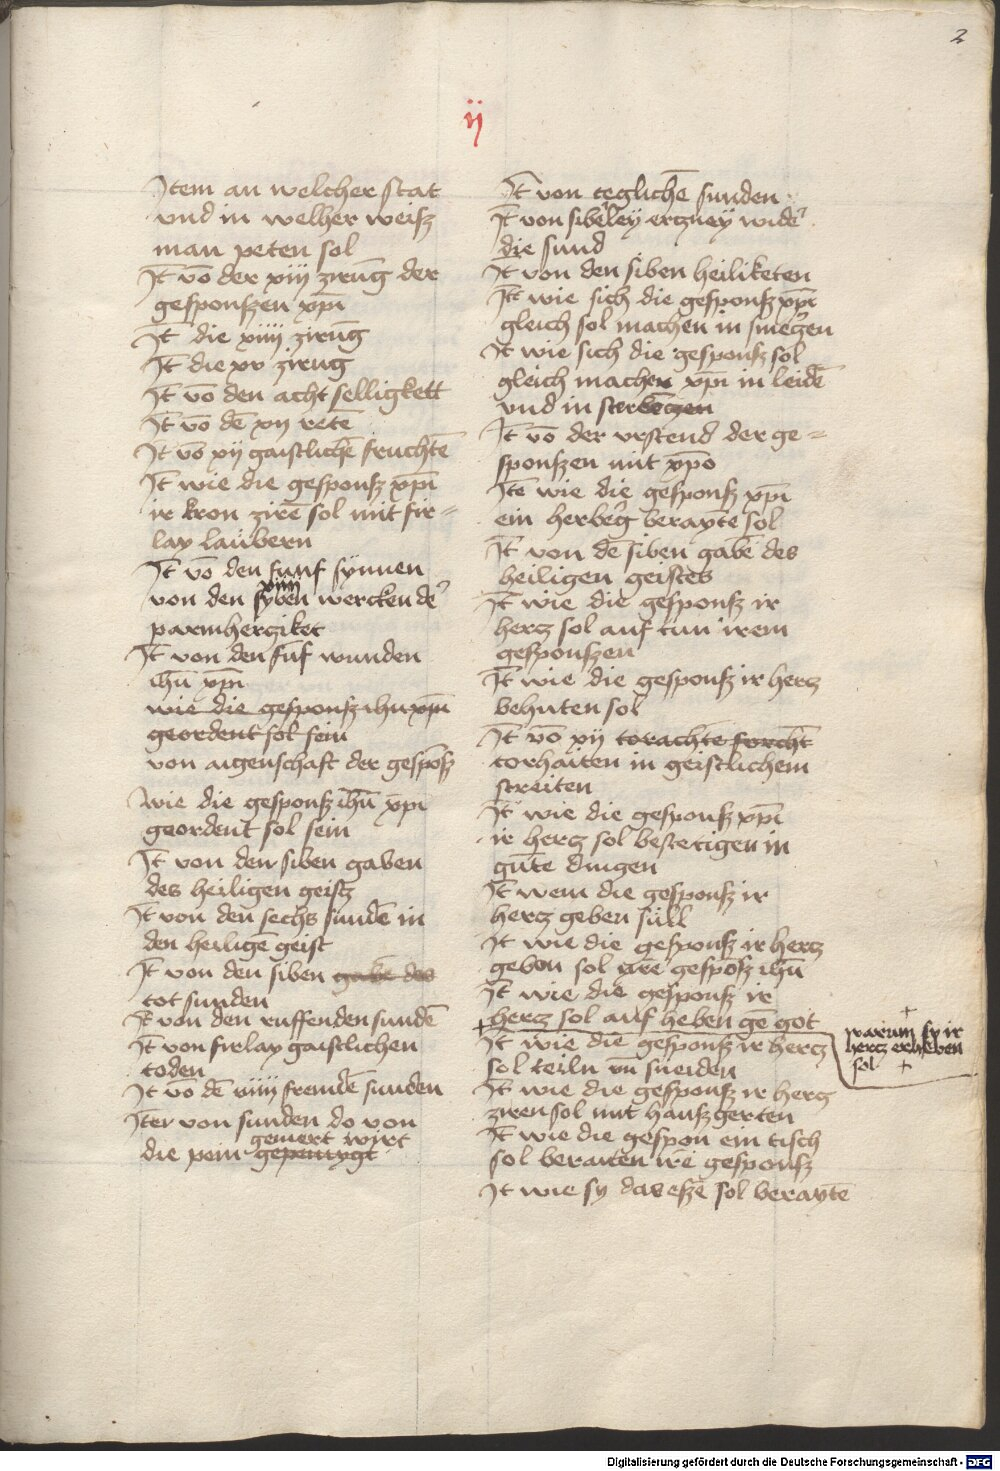 2
ij
Item an welcher stat
vnd in welher weisz
man peten sol
It vō der xiij zirūg der
gesponszen xp̄i
It die xiiij zirūg
It die xv zirūg
It vō den acht selligkett
It vō dē xij retē
It vō xij gaistlichē fruchtē
It wie die gesponsz xp̄i
ir kron zirē sol mit fir=
lay laübern
It vō den funf synnen
xiiij
von den syben wercken de᷑
parmhercziket
It von den fuf wunden
ihū xp̄i
wie die gesponsz ihu xp̄i
geordent sol sein
von aigenschaft der gespōsz
wie die gesponsz ihū xp̄i
geordent sol sein
It von den siben gaben
des heiligen geistz
It von den sechs sundē in
den heiligē geist
It von den siben gabē des
tot sunden
It von den ruffenden sundē
It von firlay gaistlichen
toden
It vō dē viiij fremdē sunden
Iter von sunden do von
gemert wirt
die pein gepeinygt
It von teglichē sunden
It von siberley erczney wide᷑
die sund
It von den siben heiliketen
It wie sich die gesponsz xp̄i
gleich sol machen in smeczen
It wie sich die gesponsz sol
gleich machen xp̄i in leidē
vnd in sterbēczen
It vō der vrstend der ge=
sponszen mit xp̄o
Itē wie die gesponsz xp̄i
ein herbe᷑g beraytē sol
It von dē siben gabē des
heiligen geistes
It wie die gesponsz ir
hercz sol auf tun irem
gesponszen
It wie die gesponsz ir hercz
behuten sol
It vō xij torachte forcht
torhaiten in geistlichem
streiten
It wie die gesponsz xp̄i
ir hercz sol bestetigen in
gūte dingen
It wem die gesponsz ir
hercz geben süll
It wie die gesponsz ir hercz
geben sol irē gespōsz ihū
It wie die gesponsz ir
hercz sol auf heben gē got
warum sy ir
hercz erheben
sol
It wie die gesponsz ir hercz
sol teiln vn̄ sneiden
It wie die gesponsz ir hercz
ziren sol mit hausz gerten
It wie die gespon ein tisch
sol beraiten irē gesponsz
It wie sy das eszē sol beraytē
Digitalisierung gefördert durch die Deutsche Forschungsgemeinschaft - DFG